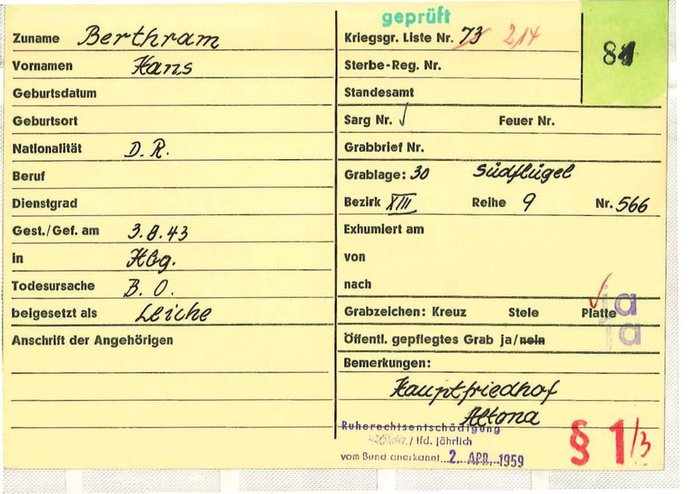 geprüft
Zuname Berthram
Vornamen Hans
Geburtsdatum
Geburtsort
Nationalität D. R.
Beruf
Dienstgrad
Gest./Gef. am 3.8.43
in Hbg.
Todesursache B. O.
beigesetzt als Leiche
Anschrift der Angehörigen
Kriegsgr. Liste Nr. 73 214
Sterbe-Reg. Nr.
Standesamt
Sarg Nr. Feuer Nr.
Grabbrief Nr.
Grablage: 30 Südflügel
Bezirk XIII Reihe 9 Nr. 566
Exhumiert am
von
nach
Grabzeichen: Kreuz Stele Platte ja
Öffentl. gepflegtes Grab ja/nein ja
Bemerkungen:
Hauptfriedhof
Altona
Ruherechtsentschädigung
/ lfd. jährlich
vom Bund anerkannt 2. APR. 1959
§ 1/3